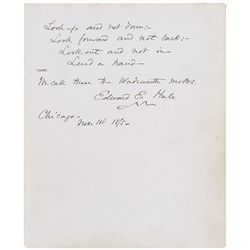 Look up and not down;–
Look forward and not back;–
Look out and not in–
Lend a hand–
We call these the Wadsworth mottos.
Edward E. Hale
Chicago–
Nov. 14.